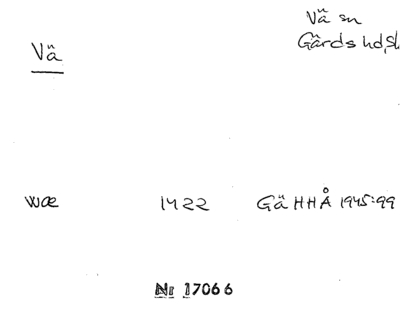 Vä sn
Gärds hd, Sk
Vä
wæ 1422 Gä HHÅ 1945:99
Nr 17066